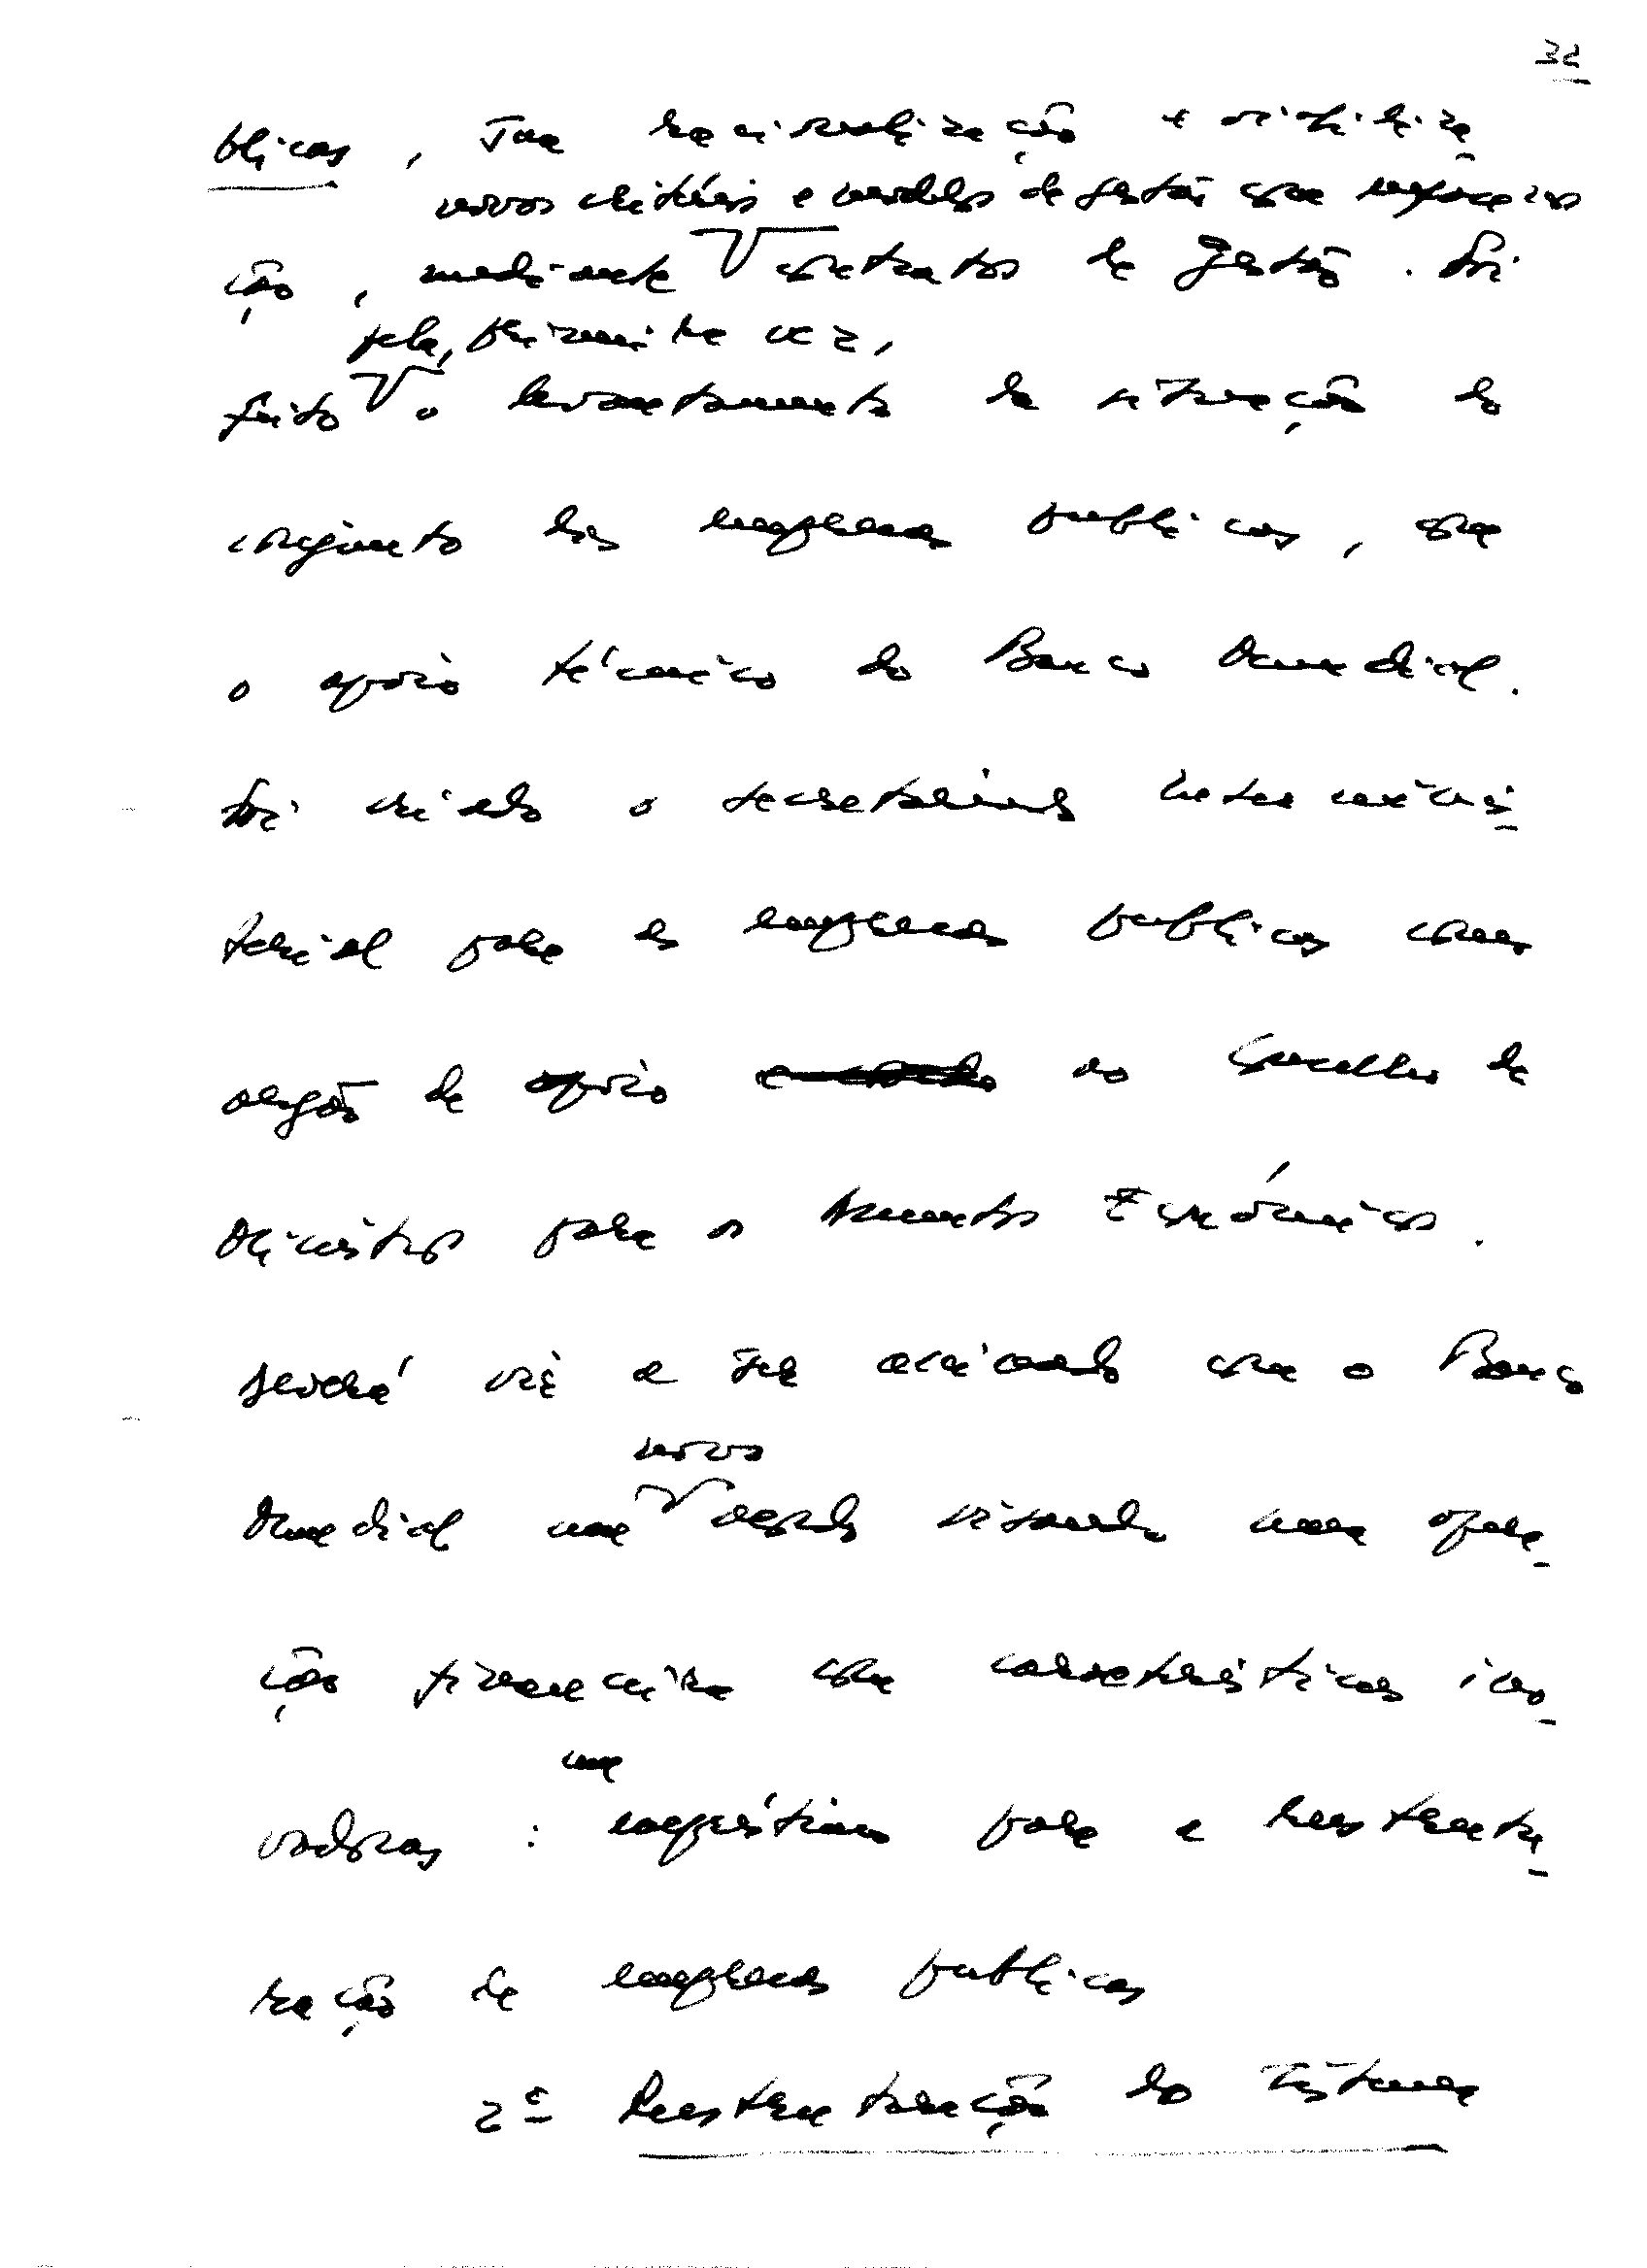 32
blicas, sua racionalização e viabiliza
novos critérios e modelos de gestão com
ção, mediante contratos de gestão. Foi
pela, primeira vez,
feito o levantamento da situação do
conjunto das empresas publicas, com
o apoio técnico do Banco Mundial.
Foi criado o secretariado interminis-
terial para as empresas publicas como
orgão de apoio ao Conselho de
Ministros para os Assuntos Económicos.
Deverá vir a ser accionado com o Banco
novo
Mundial um acordo visando uma opera-
ção financeira com caracteristicas ino-
um
vadoras : empréstimo para a reestrutu-
ração de empresas publicas
2º Reestruturação do Sistema